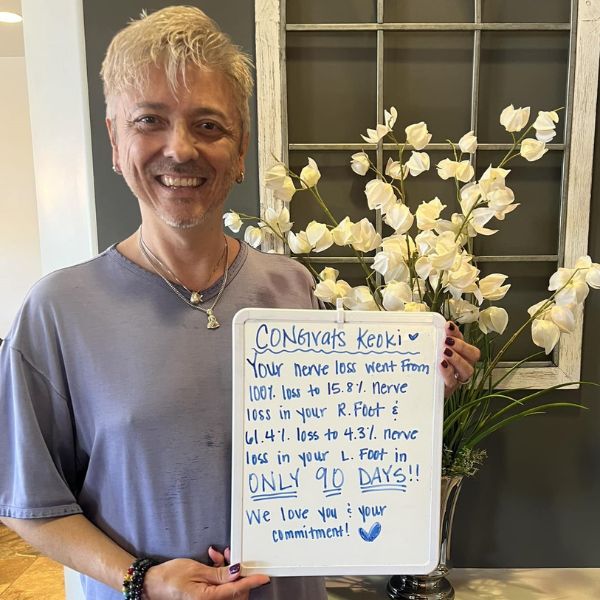 CONGratS KEOKI ♥
Your nerve loss went From
100% loss to 15.8% nerve
loss in your R. Foot &
61.4% loss to 4.3% nerve
loss in your L. Foot in
ONLY 90 DAYS!!
We love you & your
commitment! ♥